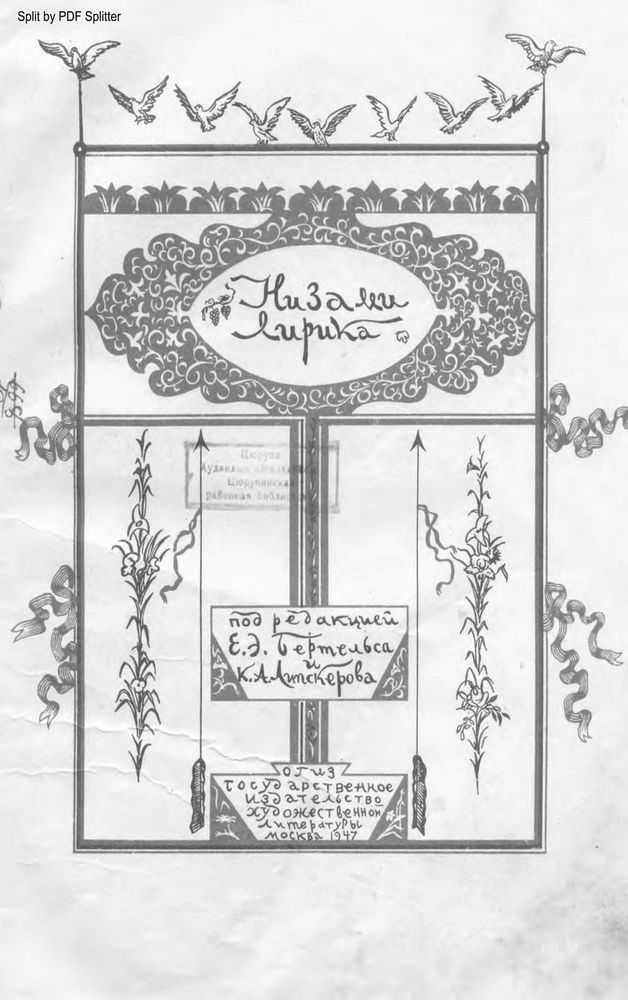 Split by PDF Splitter
Низами
лирика
Цюрупинская
районная библиотека
под редакцией
Е.Э. Бертельса
и
К.А. Липскерова
ОГИЗ
государственное
издательство
художественной
литературы
москва 1947